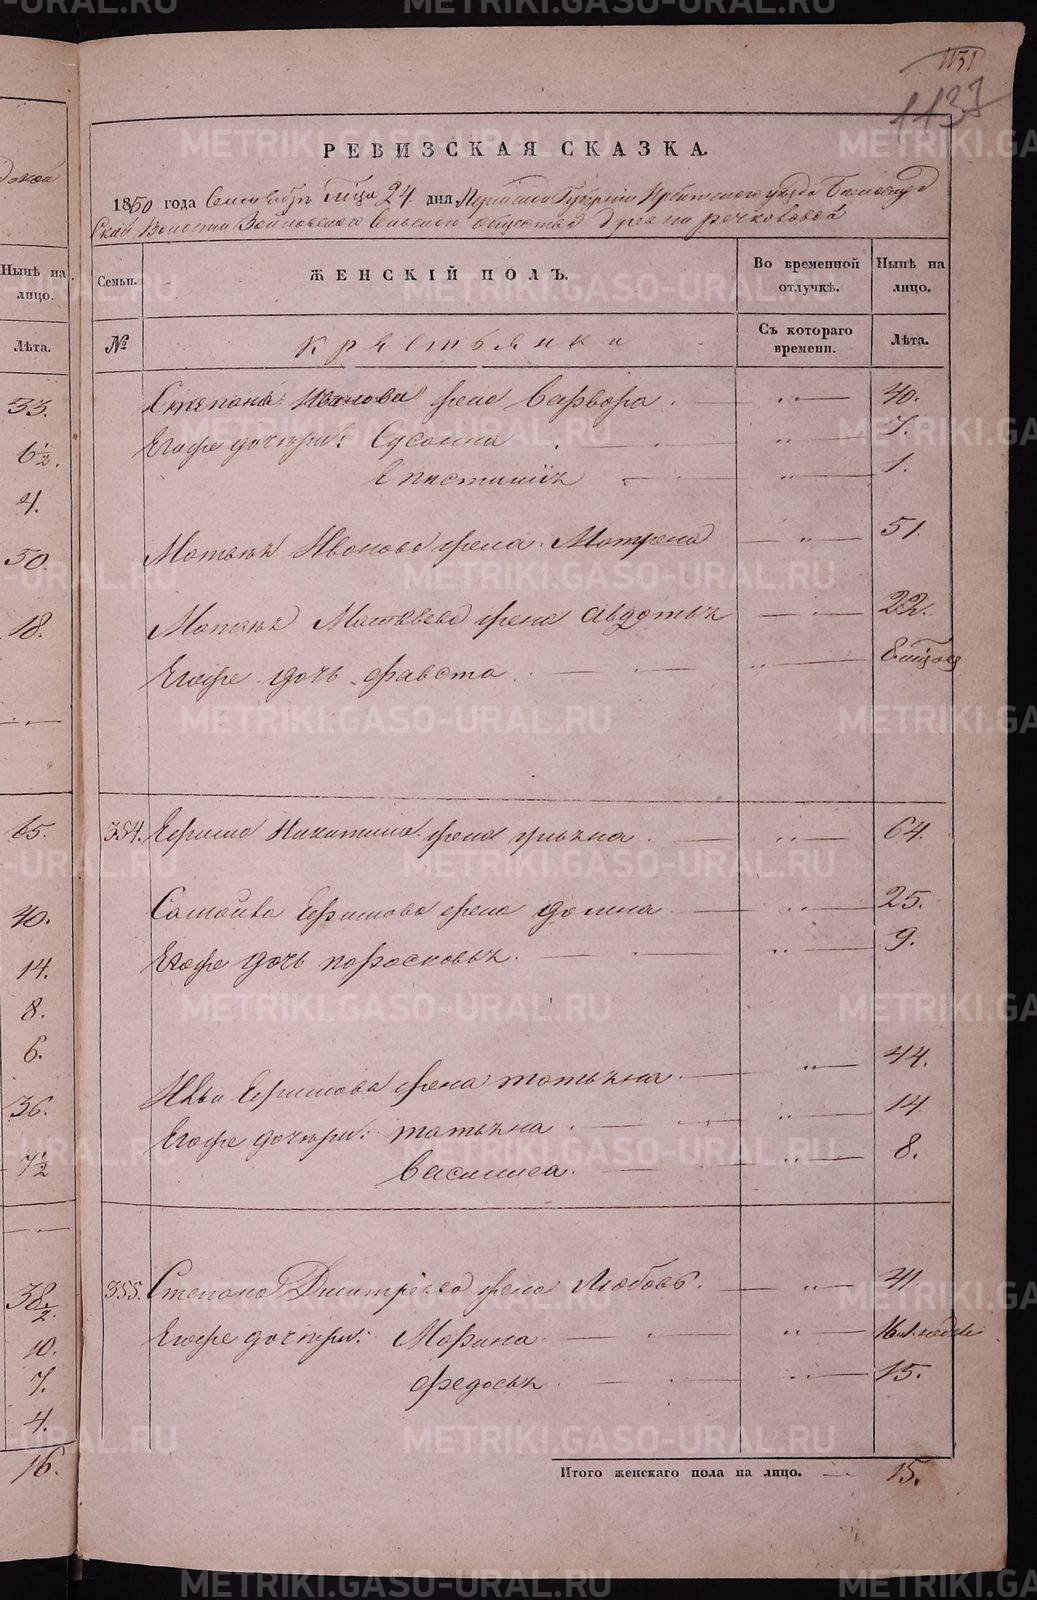 METRIKI.GASO-URAL.RU
1131
1133
РЕВИЗСКАЯ СКАЗКА.
1850 года Сентября мца 24 дня Пермской Губернiи Ирбитскаго уезда
ской Волости Зайковскаго Сельскаго общества деревни речкаловой
Ныне на лицо.
Семьи.
ЖЕНСКIЙ ПОЛЪ.
Во временной отлучкѣ.
Нынѣ на лицо.
Лѣта.
№
крестьянки
Съ котораго времени.
Лѣта.
33.
Степана Иванова жена Варвора . „ 40.
6½.
Егоже дочери: Сусанна . „ 7.
Епистимiя „ 1.
4.
50.
Матвея Иванова жена Матрена „ 51.
18.
Матвея Матвѣева жена Авдотья 22.
Егоже дочь Фавста . „ 8 мцовъ
65.
354. Ефима Никитина жена Ульяна . „ 64.
40.
Самойла Ефимова жена Домна „ 25.
14.
Егоже дочь порасковья . „ 9.
8.
6.
Ильи Ефимова жена татьяна „ 44.
36.
Егоже дочери: татьяна . „ 14.
7½
Василиса. „ 8.
38½.
355. Степана Дмитрiева жена Любовь. „ 41.
10.
Егоже дочери: Марина „
7.
Федосья „ 15.
4.
16.
Итого женскаго пола на лицо. 15.